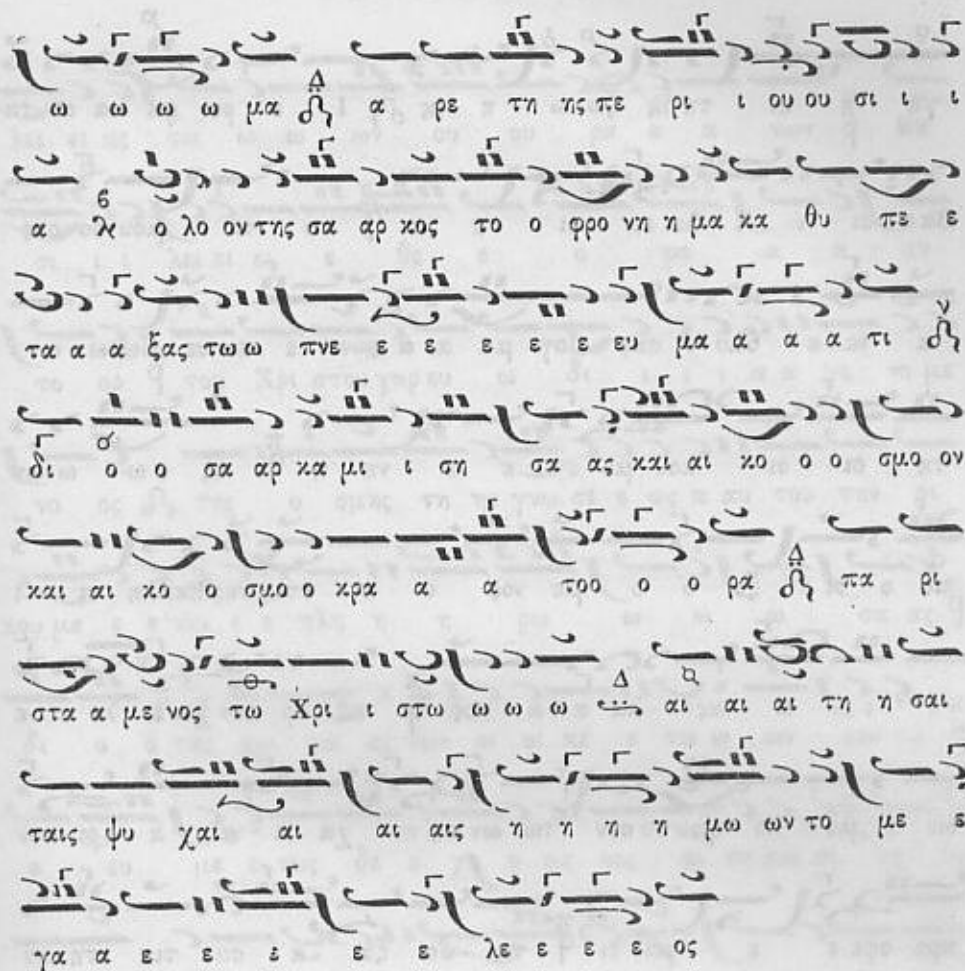 ω ω ω ω μα Δ α ρε τη ης πε ρι ι ου ου σι ι ι
α λ ο λο ον της σα αρ κος το ο φρο νη η μα κα θυ πε ε
τα α α ξας τω ω πνε ε ε ε ε ευ μα α α α τι
δι ο ο σα αρ κα μι ι ση σα ας και αι κο ο ο σμο ον
και αι κο ο σμο ο κρα α α το ο ο ρα Δ πα ρι
στα α με νος τω Χρι ι στω ω ω ω Δ αι αι αι τη η σαι
ταις ψυ χαι αι αι αις η η η η μω ων το με ε
γα α ε ε ε ε ε λε ε ε ε ος